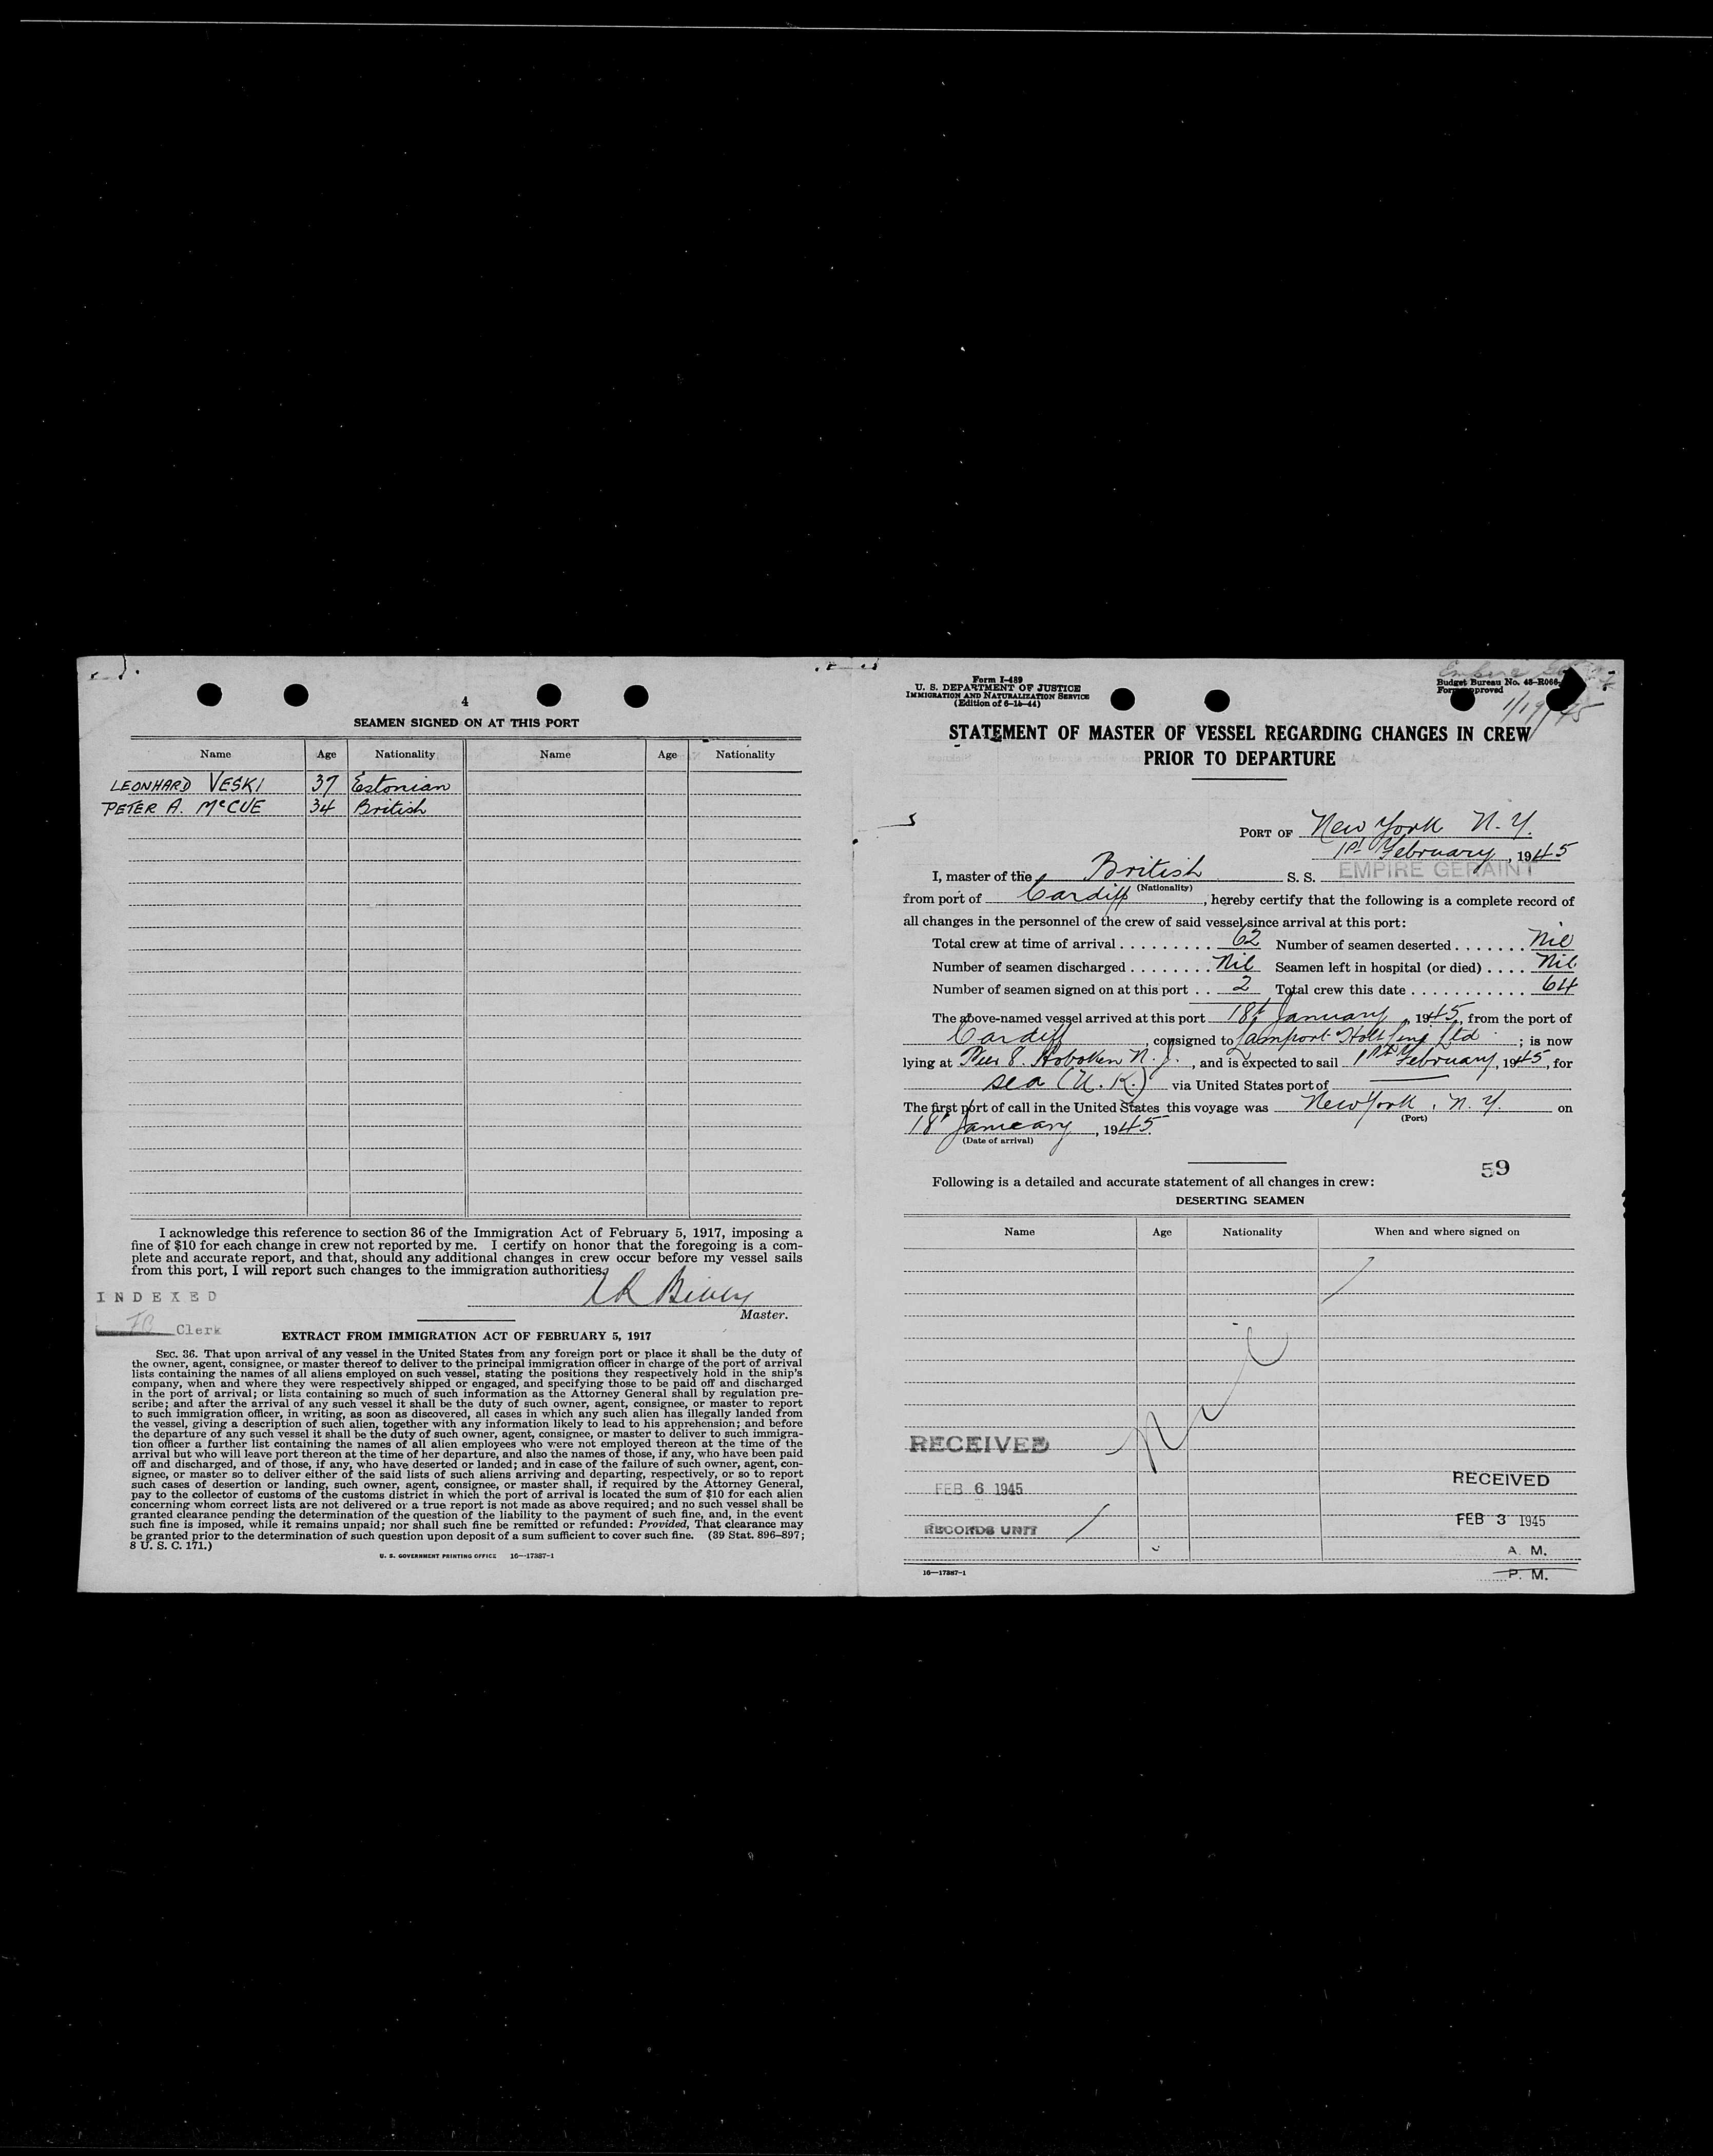 4
SEAMEN SIGNED ON AT THIS PORT
Name Age Nationality Name Age Nationality
LEONHARD VESKI 37 Estonian
PETER A. McCUE 34 British
I acknowledge this reference to section 36 of the Immigration Act of February 5, 1917, imposing a
fine of $10 for each change in crew not reported by me. I certify on honor that the foregoing is a com-
plete and accurate report, and that, should any additional changes in crew occur before my vessel sails
from this port, I will report such changes to the immigration authorities.
INDEXED
Master.
Clerk
EXTRACT FROM IMMIGRATION ACT OF FEBRUARY 5, 1917
SEC. 36. That upon arrival of any vessel in the United States from any foreign port or place it shall be the duty of
the owner, agent, consignee, or master thereof to deliver to the principal immigration officer in charge of the port of arrival
lists containing the names of all aliens employed on such vessel, stating the positions they respectively hold in the ship's
company, when and where they were respectively shipped or engaged, and specifying those to be paid off and discharged
in the port of arrival; or lists containing so much of such information as the Attorney General shall by regulation pre-
scribe; and after the arrival of any such vessel it shall be the duty of such owner, agent, consignee, or master to report
to such immigration officer, in writing, as soon as discovered, all cases in which any such alien has illegally landed from
the vessel, giving a description of such alien, together with any information likely to lead to his apprehension; and before
the departure of any such vessel it shall be the duty of such owner, agent, consignee, or master to deliver to such immigra-
tion officer a further list containing the names of all alien employees who were not employed thereon at the time of the
arrival but who will leave port thereon at the time of her departure, and also the names of those, if any, who have been paid
off and discharged, and of those, if any, who have deserted or landed; and in case of the failure of such owner, agent, con-
signee, or master so to deliver either of the said lists of such aliens arriving and departing, respectively, or so to report
such cases of desertion or landing, such owner, agent, consignee, or master shall, if required by the Attorney General,
pay to the collector of customs of the customs district in which the port of arrival is located the sum of $10 for each alien
concerning whom correct lists are not delivered or a true report is not made as above required; and no such vessel shall be
granted clearance pending the determination of the question of the liability to the payment of such fine, and, in the event
such fine is imposed, while it remains unpaid; nor shall such fine be remitted or refunded: Provided, That clearance may
be granted prior to the determination of such question upon deposit of a sum sufficient to cover such fine. (39 Stat. 896–897;
8 U. S. C. 171.)
U. S. GOVERNMENT PRINTING OFFICE 16—17387-1
Form I-489
U. S. DEPARTMENT OF JUSTICE
IMMIGRATION AND NATURALIZATION SERVICE
(Edition of 6-15-44)
Budget Bureau No. 43-R066
Form approved
1/19/45
STATEMENT OF MASTER OF VESSEL REGARDING CHANGES IN CREW
PRIOR TO DEPARTURE
PORT OF New York N.Y.
1st February, 1945
I, master of the British S. S. EMPIRE GERAINT
(Nationality)
from port of Cardiff, hereby certify that the following is a complete record of
all changes in the personnel of the crew of said vessel since arrival at this port:
Total crew at time of arrival 62 Number of seamen deserted Nil
Number of seamen discharged Nil Seamen left in hospital (or died) Nil
Number of seamen signed on at this port 2 Total crew this date 64
The above-named vessel arrived at this port 18th January, 1945, from the port of
Cardiff, consigned to Lamport Holt Line Ltd; is now
lying at Pier 8. Hoboken N.J., and is expected to sail 1st February, 1945, for
sea (U.K.) via United States port of
The first port of call in the United States this voyage was New York, N.Y. on
(Port)
18th January, 1945
(Date of arrival)
59
Following is a detailed and accurate statement of all changes in crew:
DESERTING SEAMEN
Name Age Nationality When and where signed on
Nil
RECEIVED
FEB 6 1945
RECORDS UNIT
RECEIVED
FEB 3 1945
A. M.
P. M.
16—17387-1